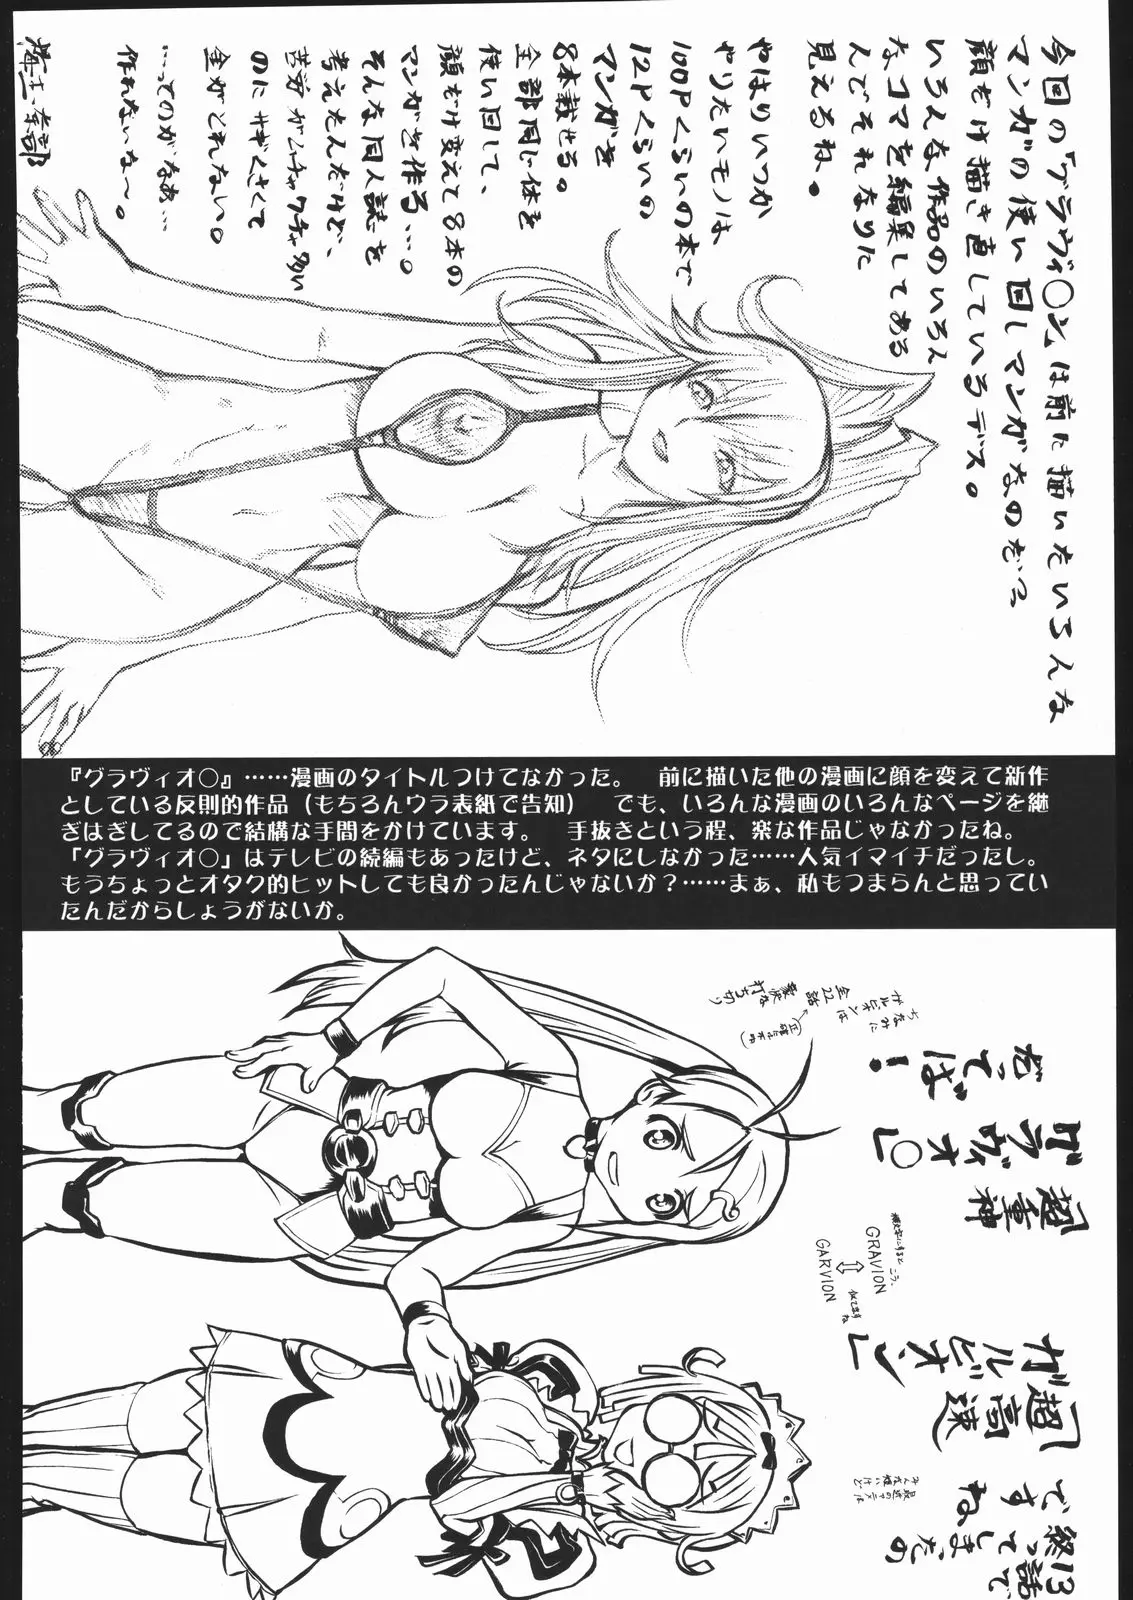 今回の「グラヴィ〇ン」は前に描いたいろんな
マンガの使い回しマンガなのだっ
顔だけ描き直しているデス。
いろんな作品のいろん
なコマを編集してある
んでそれなりに
見えるね。
やはりいつか
やりたいモノは
100Pくらいの本で
12Pくらいの
マンガを
8本載せる。
全部同じ体を
使い回して、
顔だけ変えて8本の
マンガを作る…。
そんな同人誌を
考えたんだけど、
苦労がムチャクチャ多い
のにサギくさくて
金がとれない。
…ってのがなぁ…
作れないな〜。
『グラヴィオ〇』……漫画のタイトルつけてなかった。 前に描いた他の漫画に顔を変えて新作
としている反則的作品（もちろんウラ表紙で告知） でも、いろんな漫画のいろんなページを継
ぎはぎしてるので結構な手間をかけています。 手抜きという程、楽な作品じゃなかったね。
「グラヴィオ〇」はテレビの続編もあったけど、ネタにしなかった……人気イマイチだったし。
もうちょっとオタク的ヒットしても良かったんじゃないか？……まぁ、私もつまらんと思ってい
たんだからしょうがないか。
だってば！
「超重神
グラヴィオ〇」
ちなみに
ガルビオンは
全22話
打ち切り
GRAVION
⇕
GARVION
似てますね
「超高速
ガルビオン」
13話で
終ってしまったの
ですね